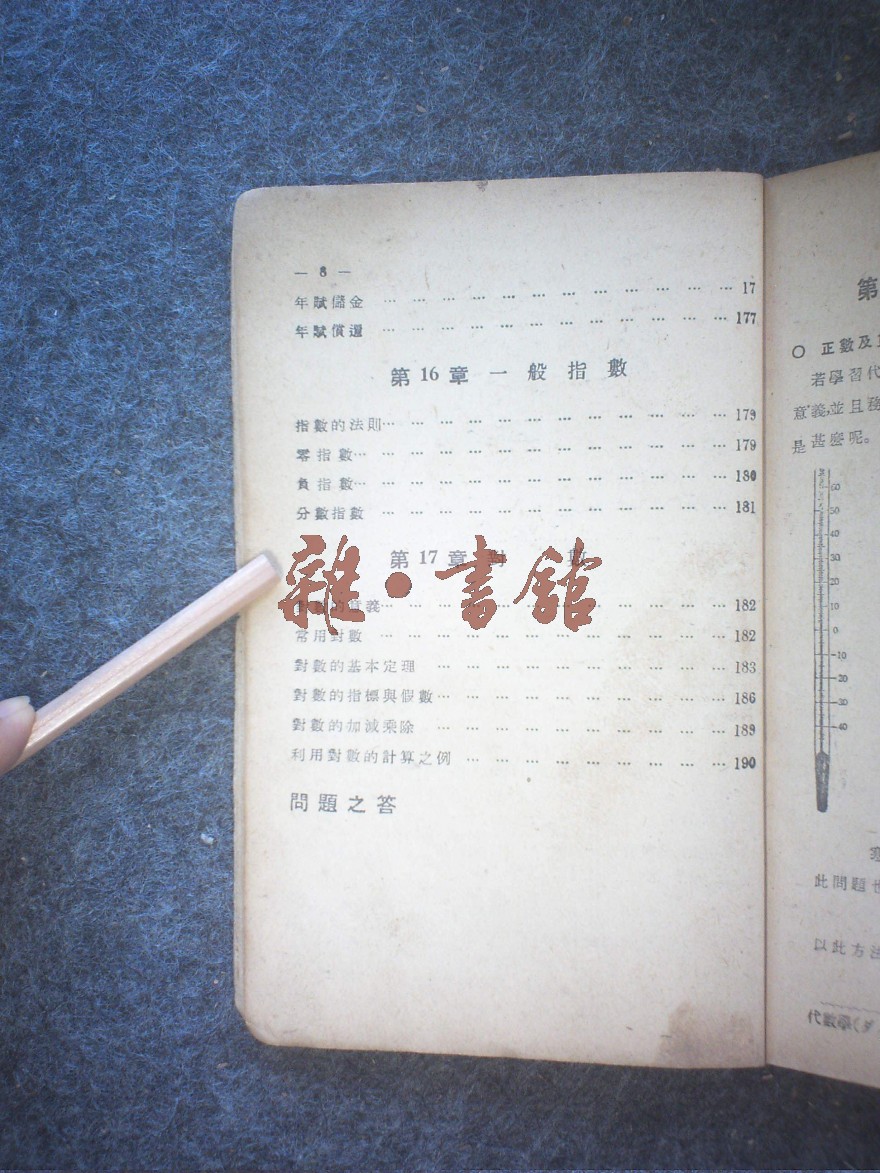 — 8 —
年賦儲金 … … … … … … … … … … … … 17
年賦償還 … … … … … … … … … … … … 177
第16章 一般指數
指數的法則… … … … … … … … … … … … 179
零指數… … … … … … … … … … … … … 179
負指數… … … … … … … … … … … … … 180
分數指數 … … … … … … … … … … … … 181
第17章 對 數
對數的意義… … … … … … … … … … … … 182
常用對數 … … … … … … … … … … … … 182
對數的基本定理 … … … … … … … … … … 183
對數的指標與假數… … … … … … … … … … 186
對數的加減乘除 … … … … … … … … … … 189
利用對數的計算之例 … … … … … … … … … 190
問題之答
雜·書館
第
○ 正數及
若學習代
意義,並且
是甚麽呢。
60
50
40
30
20
10
0
-10
-20
-30
-40
此問題也
以此方法
代數學(